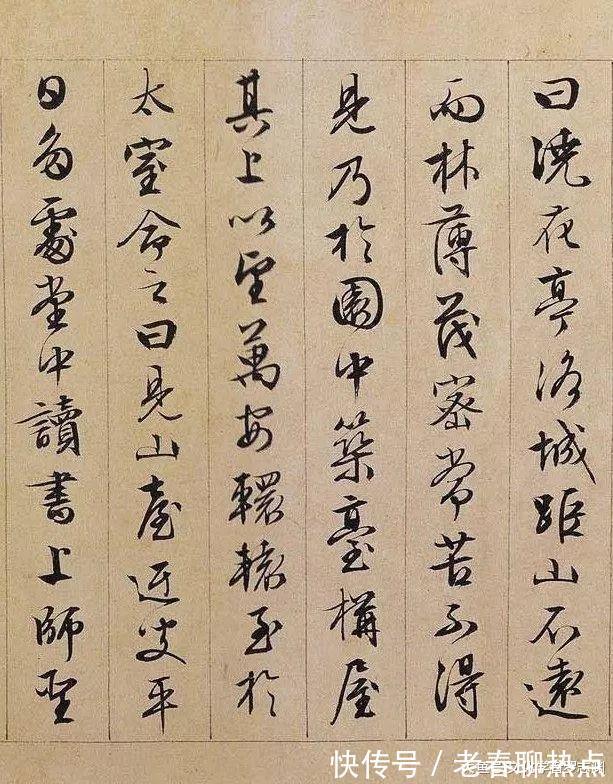 曰澆花亭洛城距山不遠
而林薄茂密常苦不得
見乃於園中築臺構屋
其上以望萬安轘轅至於
太室命之曰見山臺迂叟平
日多處堂中讀書上師聖
快传号/老春聊热点